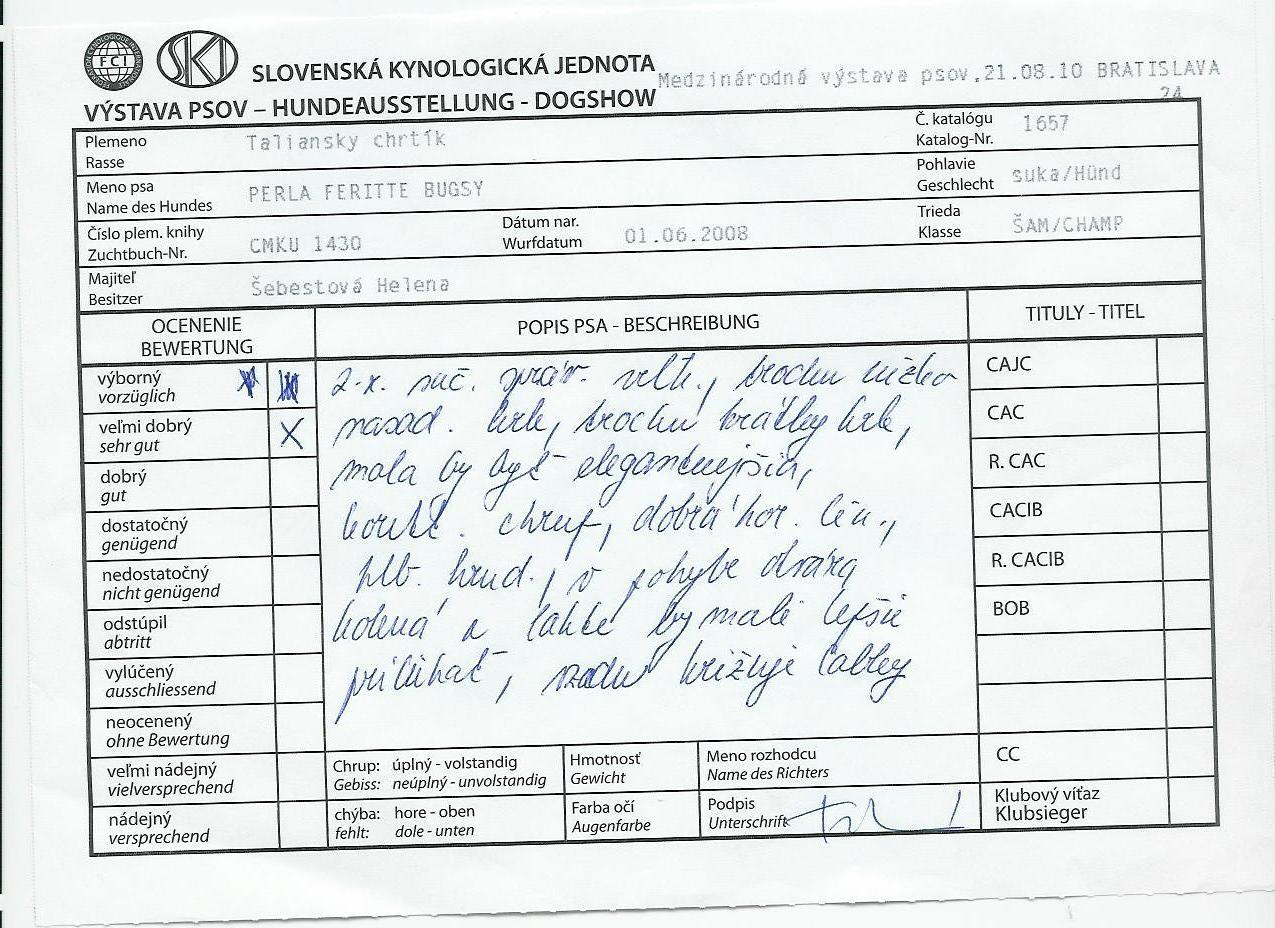 FCI SKJ
SLOVENSKÁ KYNOLOGICKÁ JEDNOTA Medzinárodná výstava psov,21.08.10 BRATISLAVA
24
VÝSTAVA PSOV – HUNDEAUSSTELLUNG - DOGSHOW
Plemeno Taliansky chrtík Č. katalógu 1657
Rasse Katalog-Nr.
Meno psa PERLA FERITTE BUGSY Pohlavie suka/Hünd
Name des Hundes Geschlecht
Číslo plem. knihy CMKU 1430 Dátum nar. 01.06.2008 Trieda ŠAM/CHAMP
Zuchtbuch-Nr. Wurfdatum Klasse
Majiteľ Šebestová Helena
Besitzer
OCENENIE POPIS PSA - BESCHREIBUNG TITULY - TITEL
BEWERTUNG
výborný
vorzüglich
veľmi dobrý X
sehr gut
dobrý
gut
dostatočný
genügend
nedostatočný
nicht genügend
odstúpil
abtritt
vylúčený
ausschliessend
neocenený
ohne Bewertung
veľmi nádejný
vielversprechend
nádejný
versprechend
2-r. suč. správ. veľk., trochu nízko
nasad. krk, trochu krátky krk,
mala by byť elegantnejšia,
korekt. chrup, dobrá hor. lín.,
hlb. hrud., v pohybe
kolená a lakte by mali lepšie
priliehať, vzadu križuje labky
Chrup: úplný - volstandig
Gebiss: neúplný - unvolstandig
chýba: hore - oben
fehlt: dole - unten
Hmotnosť
Gewicht
Farba očí
Augenfarbe
Meno rozhodcu
Name des Richters
Podpis
Unterschrift
CAJC
CAC
R. CAC
CACIB
R. CACIB
BOB
CC
Klubový víťaz
Klubsieger